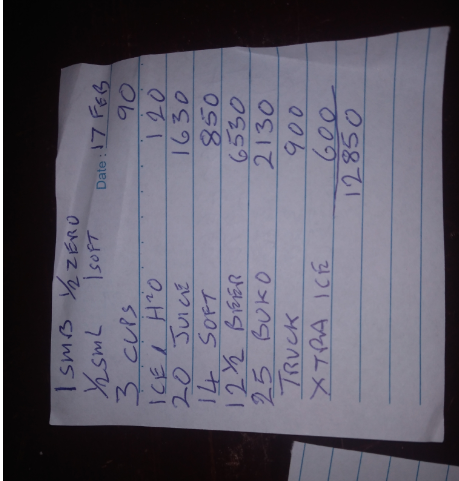 1 SMB 1/2 ZERO
1/2 SML 1 SOFT Date: 17 FEB
3 CUPS 90
ICE / H2O 120
20 JUICE 1630
14 SOFT 850
12 1/2 BEER 6530
25 BUKO 2130
TRUCK 900
XTRA ICE 600
12850